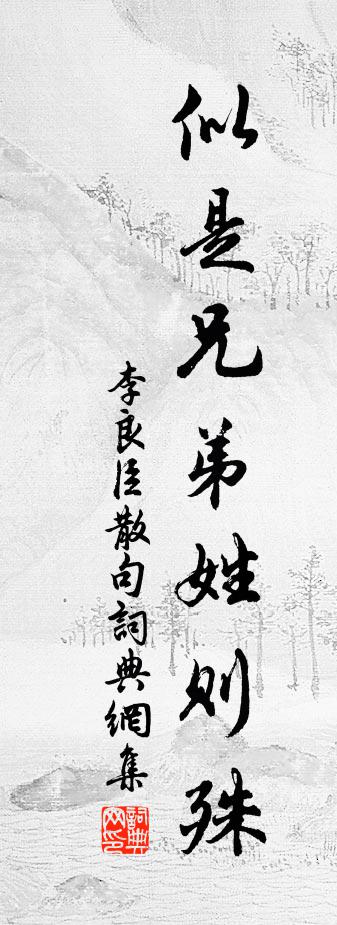 似是兄弟姓則殊
李良臣散句詞典網集
詞典網印